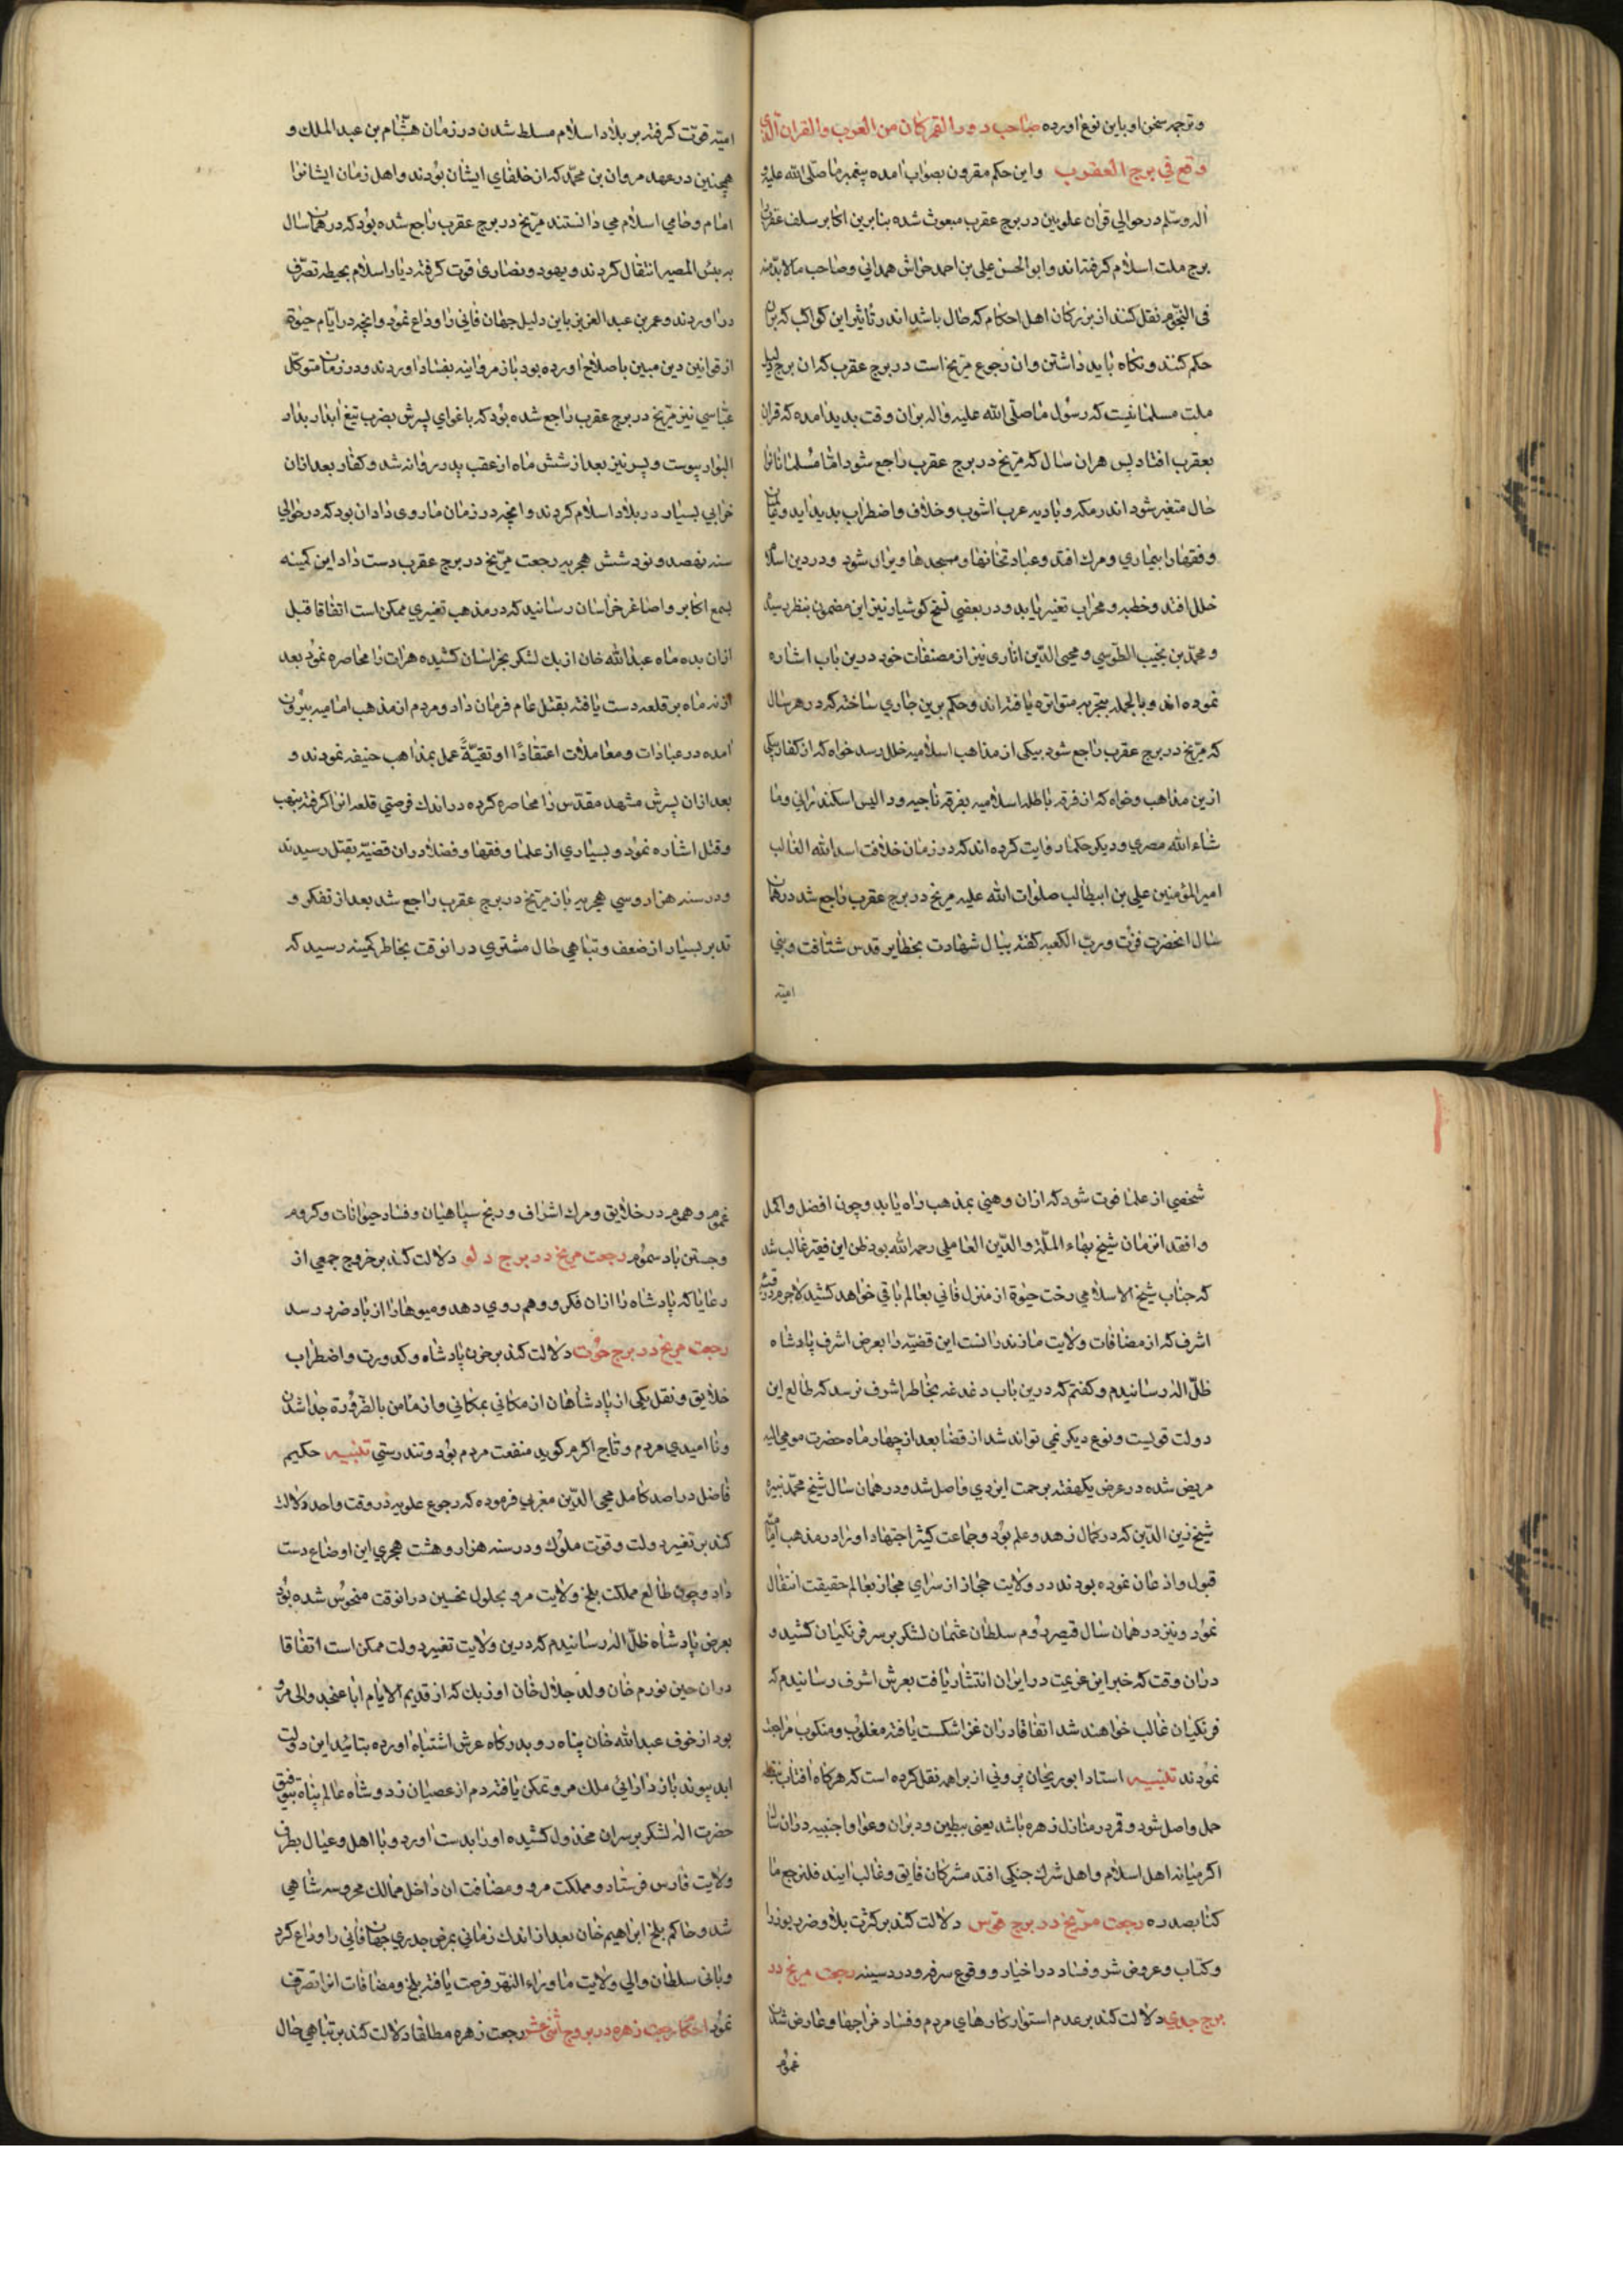 وترجمه سخن او باین نوع آورده صاحب دور القمر کان من العرب والقران الذی
وقع فی برج العقرب واین حکم مقرون بصواب آمده پیغمبر ما صلی الله علیه
آله وسلم در حوالی قران علویین در برج عقرب مبعوث شده بنابرین اکابر سلف عقرب
برج ملت اسلام گرفته‌اند وابو الحسن علی بن احمد همدانی وصاحب مالابد منه
فی النجوم نقل کنند از بزرکان اهل احکام که حال باشد اندر تأثیر این کواکب که بران
حکم کنند ونکاه باید داشتن وان رجوع مریخ است در برج عقرب که ان برج دلیل
ملت مسلمانیست که رسول ما صلی الله علیه واله بران وقت بدید امده که قران
بعقرب افتاد پس هران سال که مریخ در برج عقرب راجع شود امّا مسلمانانرا
حال متغیر شود اندر مکه وبادیه عرب اشوب وخلاف واضطراب بدید اید
وفقها را بیماری ومرك افتد وعبادتخانها ومسجدها ویران شود ودر دین اسلام
خلل افتد وخطبه ومحراب تغیر یابد ودر بعضی نسخ کوشیار نیز این مضمون بنظر رسیده
ومحمد بن نجیب الطوسی ومحیی الدین اناری نیز از مصنفات خود درین باب اشاره
نموده اند وبالجمله بتجربه متواتره یافته‌اند وحکم برین جاری ساخته که در هر سال
که مریخ در برج عقرب راجع شود بیکی از مذاهب اسلامیه خلل رسد خواه که از کفار بیکی
ازین مذاهب وخواه که از فرقه باطله اسلامیه بفرقه ناجیه ودالیس اسکندرانی وما
شاء الله مصری ودیکر حکما روایت کرده اند که در زمان خلافت اسد الله الغالب
امیر المؤمنین علی بن ابیطالب صلوات الله علیه مریخ در برج عقرب راجع شد در همان
سال انحضرت فزت ورب الکعبه کفته ببال شهادت بحظایر قدس شتافت وبنی
امیه
امیّه قوّت کرفته بر بلاد اسلام مسلط شدن در زمان هشّام بن عبد الملك و
همچنین در عهد مروان بن محمّد که از خلفای ایشان بودند واهل زمان ایشانرا
امام وحامی اسلام می دانستند مریخ در برج عقرب راجع شده بود که در همان سال
به بئس المصیر انتقال کردند ویهود ونصاری قوت کرفته دیار اسلام بحیطه تصرّف
در اوردند وعمر بن عبد العزیز باین دلیل جهان فانی را وداع نمود وانچه در ایّام حیوة
از قوانین دین مبین باصلاح اورده بود باز مروانیه بفساد اوردند ودر زمان متوکل
عبّاسی نیز مریخ در برج عقرب راجع شده بود که باغوای پسرش بضرب تیغ ابدار بدار
البوار پیوست وپسر نیز بعد از شش ماه از عقب پدر روانه شد وکفار بعد ازان
خرابی بسیار در بلاد اسلام کردند وانچه در زمان ما روی داد ان بود که در حوالی
سنه نهصد ونود شش هجریه رجعت مریخ در برج عقرب دست داد این کمینه
بسمع اکابر واصاغر خراسان رسانید که در مذهب تغیری ممکن است اتفاقا قبل
ازان بده ماه عبد الله خان ازبك لشکر بخراسان کشیده هرات را محاصره نمود بعد
از نه ماه بر قلعه دست یافته بقتل عام فرمان داد ومردم از مذهب امامیه بیرون
امده در عبادات ومعاملات اعتقادًا او تقیّةً عمل بمذاهب حنیفه نمودند و
بعد ازان پسرش مشهد مقدّس را محاصره کرده در اندك فرصتی قلعه انرا کرفته بنهب
وقتل اشاره نمود وبسیاری از علما وفقها وفضلا دران قضیّه بقتل رسیدند
ودر سنه هزار وسی هجریه باز مریخ در برج عقرب راجع شد بعد از تفکر و
تدبر بسیار از ضعف وتباهی حال مشتری در انوقت بخاطر کمینه رسید که
شخصی از علما فوت شود که ازان وهنی بمذهب راه یابد وچون افضل واکمل
وافقه انزمان شیخ بهاء الملّة والدّین العاملی رحمه الله بود ظن این فقیر غالب شد
که جناب شیخ الاسلامی رخت حیوة از منزل فانی بعالم باقی خواهد کشید لاجرم در قصبه
اشرف که از مضافات ولایت مازندرانست این قضیّه را بعرض اشرف پادشاه
ظلّ اله رسانیدم وکفتم که درین باب دغدغه بخاطر اشرف نرسد که طالع این
دولت قویست ونوع دیکر نمی تواند شد از قضا بعد از چهار ماه حضرت مومی الیه
مریض شده در عرض یکهفته برحمت ایزدی واصل شد ودر همان سال شیخ محمّد نبیره
شیخ زین الدّین که در کمال زهد وعلم بود وجماعت کثیر اجتهاد او را در مذهب امامیّه
قبول واذعان نموده بودند در ولایت حجاز از سرای مجاز بعالم حقیقت انتقال
نمود ونیز در همان سال قیصر روم سلطان عثمان لشکر بر سر فرنکیان کشید و
دران وقت که خبر این عزیمت در ایران انتشار یافت بعرض اشرف رسانیدم که
فرنکیان غالب خواهند شد اتفاقا دران غزا شکست یافته مغلوب ومنکوب مراجعت
نمودند تنبیه استاد ابو ریحان بیرونی از براهمه نقل کرده است که هرکاه افتاب بنقطه
حمل واصل شود وقمر در منازل زهره باشد یعنی بطین ودبران وعوا واجنبیه دران سال
اکر میانه اهل اسلام واهل شرك جنکی افتد مشرکان فایق وغالب ایند فلنرجع ما
کنا بصدده رجعت مرّیخ در برج قوس دلالت کند بر کثرت بلا وضرر بوزرا
وکتّاب وعروض شر وفساد در اخیار ووقوع سرفه ودرد سینه رجعت مریخ در
برج جدی دلالت کند بر عدم استوار کارهای مردم وفساد مزاجها وعارض شدن
غموم
غموم وهموم در خلایق ومرك اشراف ورنج سپاهیان وفساد حیوانات وکروم
وجستن باد سموم رجعت مریخ در برج دلو دلالت کند بر خروج جمعی از
رعایا که پادشاه را ازان فکر ووهم روی دهد ومیوها را از باد ضرر رسد
رجعت مریخ در برج حوت دلالت کند بر حزن پادشاه وکدورت واضطراب
خلایق ونقل یکی از پادشاهان از مکانی بمکانی واز مامن بالضرورة جدا شدن
ونا امیدی مردم وتاج اکرم کوید منفعت مردم بود وتندرستی تنبیه حکیم
فاضل در اصد کامل محیی الدّین مغربی فرموده که رجوع علویه در وقت واحد دلالت
کند بر تغیر دولت وقوّت ملوك ودر سنه هزار وهشت هجری این اوضاع دست
داد وچون طالع مملکت بلخ وولایت مرو بحلول نحسین در انوقت منحوس شده بود
بعرض پادشاه ظلّ اله رسانیدم که درین ولایت تغیر دولت ممکن است اتفاقا
دران حین نورم خان ولد جلال خان اوزبك که از قدیم الایام اباعنجد والی مرو
بود از خوف عبد الله خان پناه رو بدرکاه عرش اشتباه اورده بتائید این دولت
ابد پیوند باز دارائی ملك مرو تمکن یافته دم از عصیان زد وشاه عالم پناه بتوفیق
حضرت اله لشکر بر سر ان مخذول کشیده او را بدست اورد وبا اهل وعیال بطرف
ولایت فارس فرستاد ومملکت مرو ومضافت ان داخل ممالك محروسه شاهی
شد وحاکم بلخ ابراهیم خان بعد از اندك زمانی بمرض جدری جهان فانی را وداع کرد
وبانی سلطان والی ولایت ماوراء النهر فرصت یافته بلخ ومضافات انرا تصرّف
نمود احکام رجعت زهره در بروج اثنی عشر رجعت زهره مطلقا دلالت کند بر تباهی حال